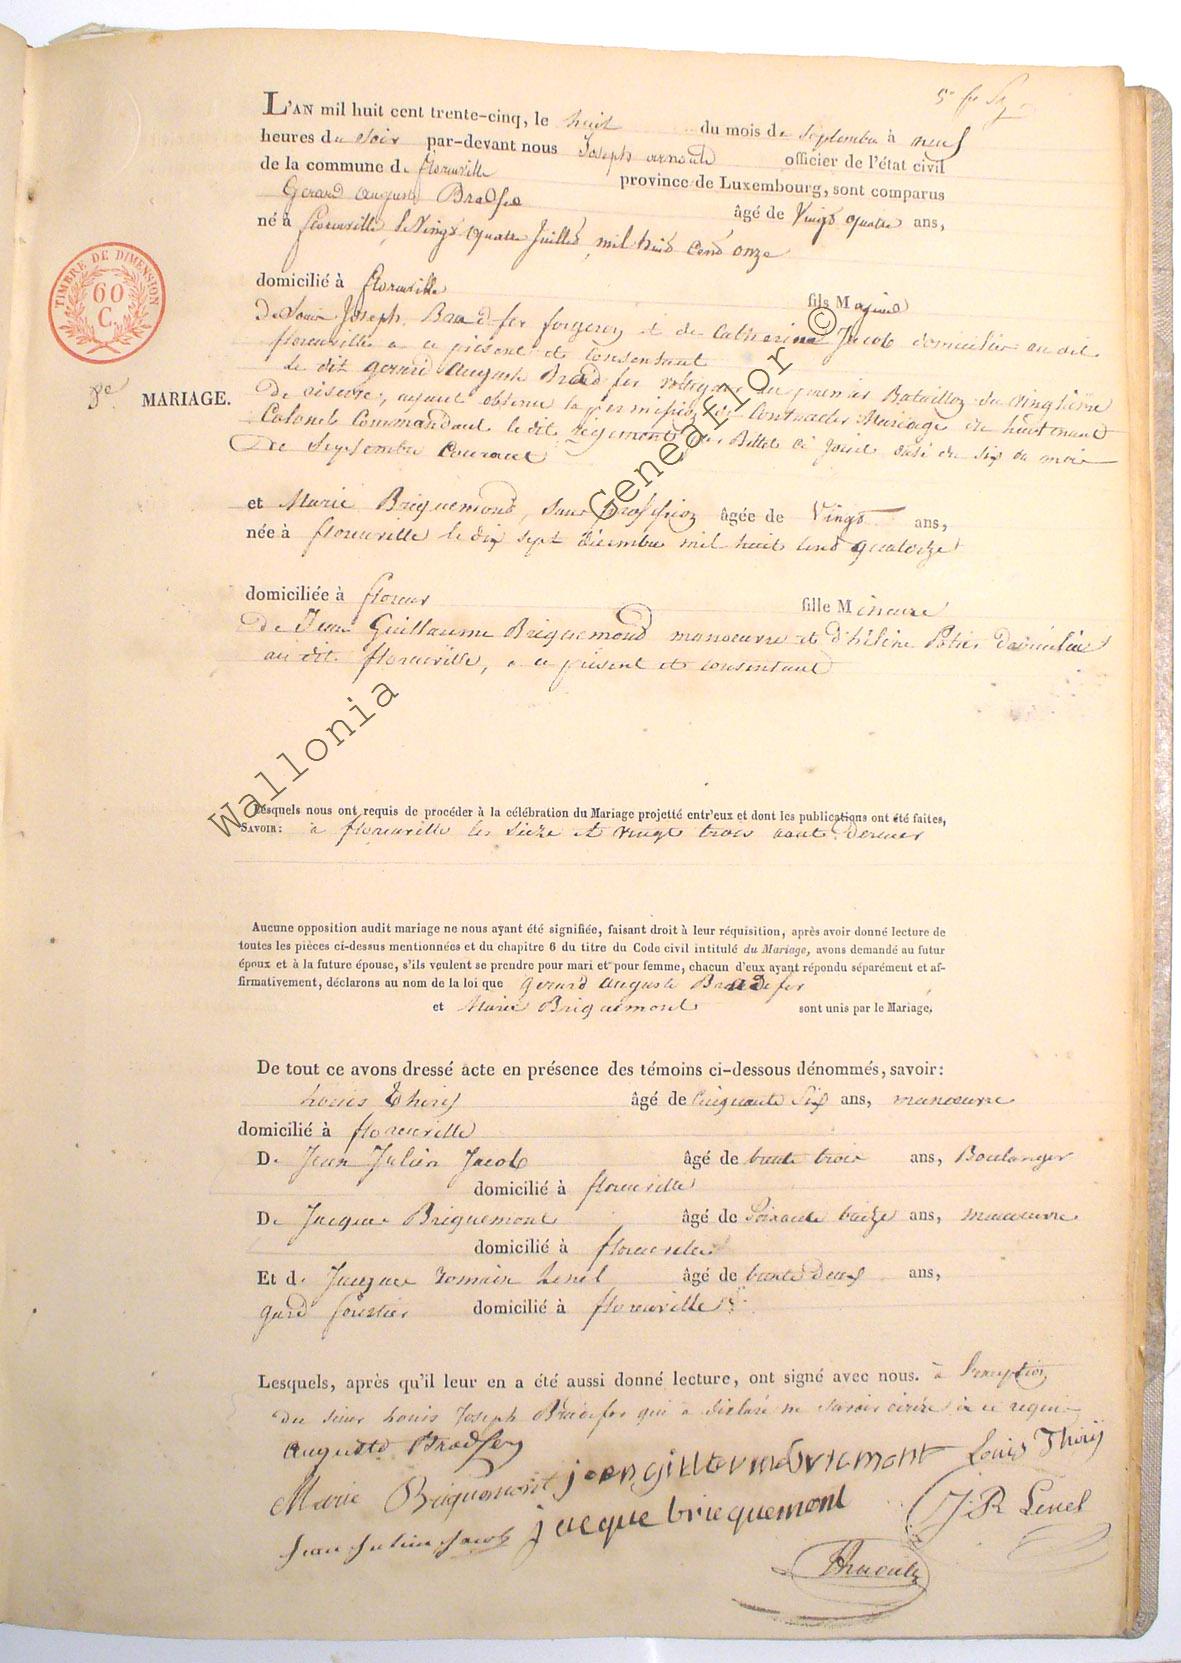 L'AN mil huit cent trente-cinq, le huit du mois de Septembre à neuf
heures du soir par-devant nous Joseph arnould officier de l'état civil
de la commune de florenville province de Luxembourg, sont comparus
Gerard Auguste Bradfer âgé de Vingt quatre ans,
né à florenville, le Vingt quatre Juillet, mil huit Cent onze
domicilié à florenville fils Majeur
De Louis Joseph Bradfer forgeron et de Catherine Jacob domiciliés au dit
florenville a ce présent et Consentant
Le dit gerard Auguste Bradfer au premier Bataillon du
De réserve, ayant obtenu la permission de Contracter Mariage du lieutenant
Colonel Commandant le dit régiment Billet ci Joint daté du Six du mois
De Septembre Courant
8e MARIAGE.
TIMBRE DE DIMENSION
60
C.
et Marie Briquemont, sans profession âgée de Vingt ans,
née à florenville le dix sept décembre mil huit Cent quatorze
domiciliée à florenv fille Mineure
De Jean Guillaume Briquemont manoeuvre et d'hélène Potier domiciliés
au dit florenville, a ce présent et consentant
Lesquels nous ont requis de procéder à la célébration du Mariage projetté entr'eux et dont les publications ont été faites,
SAVOIR: à florenville les Sieze et vingt trois aout dernier
Aucune opposition audit mariage ne nous ayant été signifiée, faisant droit à leur réquisition, après avoir donné lecture de
toutes les pièces ci-dessus mentionnées et du chapitre 6 du titre du Code civil intitulé du Mariage, avons demandé au futur
époux et à la future épouse, s'ils veulent se prendre pour mari et pour femme, chacun d'eux ayant répondu séparément et af-
firmativement, déclarons au nom de la loi que Gerard Auguste Bradefer
et Marie Briquemont sont unis par le Mariage.
De tout ce avons dressé acte en présence des témoins ci-dessous dénommés, savoir:
Louis Thiry âgé de Cinquante Six ans, manoeuvre
domicilié à florenville
De Jean Julien Jacob âgé de trente trois ans, Boulanger
domicilié à florenville
De Jacques Briquemont âgé de Soixante treize ans, manoeuvre
domicilié à florenville
Et de Jacques romain Lenel âgé de trente deux ans,
gard forestier domicilié à florenville
Lesquels, après qu'il leur en a été aussi donné lecture, ont signé avec nous. à l'exception
du sieur Louis Joseph Bradefer qui a déclaré ne savoir écrire à ce requis
Auguste Bradfer
Marie Briquemont Louis Thirÿ
Jean Julien Jacob jacque bricquemont J. R Lenel
Wallonia Geneaflor ©